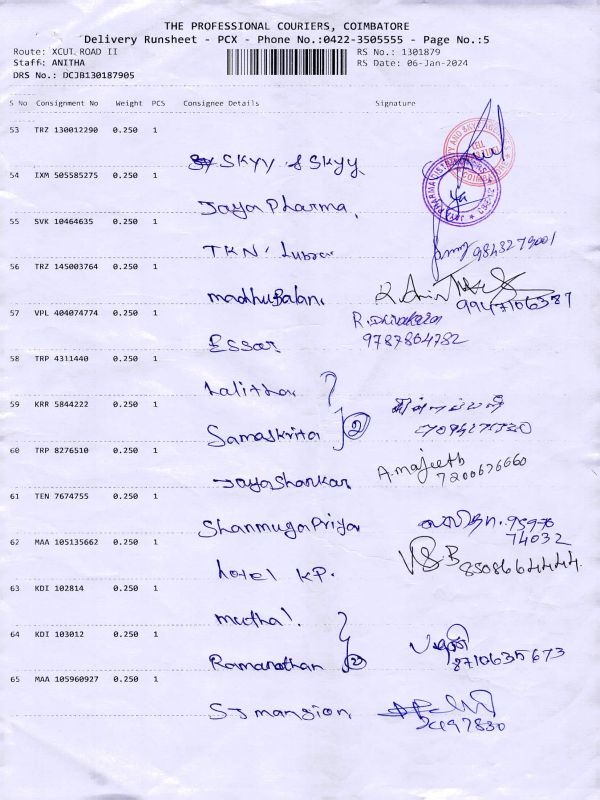 THE PROFESSIONAL COURIERS, COIMBATORE
Delivery Runsheet - PCX - Phone No.:0422-3505555 - Page No.:5
Route: XCUT ROAD II RS No.: 1301879
Staff: ANITHA RS Date: 06-Jan-2024
DRS No.: DCJB130187905
S No Consignment No Weight PCS Consignee Details Signature
53 TRZ 130012290 0.250 1
SKYY & SKYY
54 IXM 505585275 0.250 1
Jaya Pharma,
55 SVK 10464635 0.250 1
TKN
9843279001
56 TRZ 145003764 0.250 1
madhuBalani
9947106587
57 VPL 404074774 0.250 1
R.Divakaran
Essar 9787864782
58 TRP 4311440 0.250 1
Lalitha
59 KRR 5844222 0.250 1
Samaskrita 2
60 TRP 8276510 0.250 1
Jayashankar A.majeeth
7200676660
61 TEN 7674755 0.250 1
Shanmuga Priya 95976
74032
62 MAA 105135662 0.250 1
hotel KP. VSB 8508664444.
63 KDI 102814 0.250 1
muthal.
64 KDI 103012 0.250 1
Ramanathan 2 பழனி
8710635673
65 MAA 105960927 0.250 1
SJ mansion